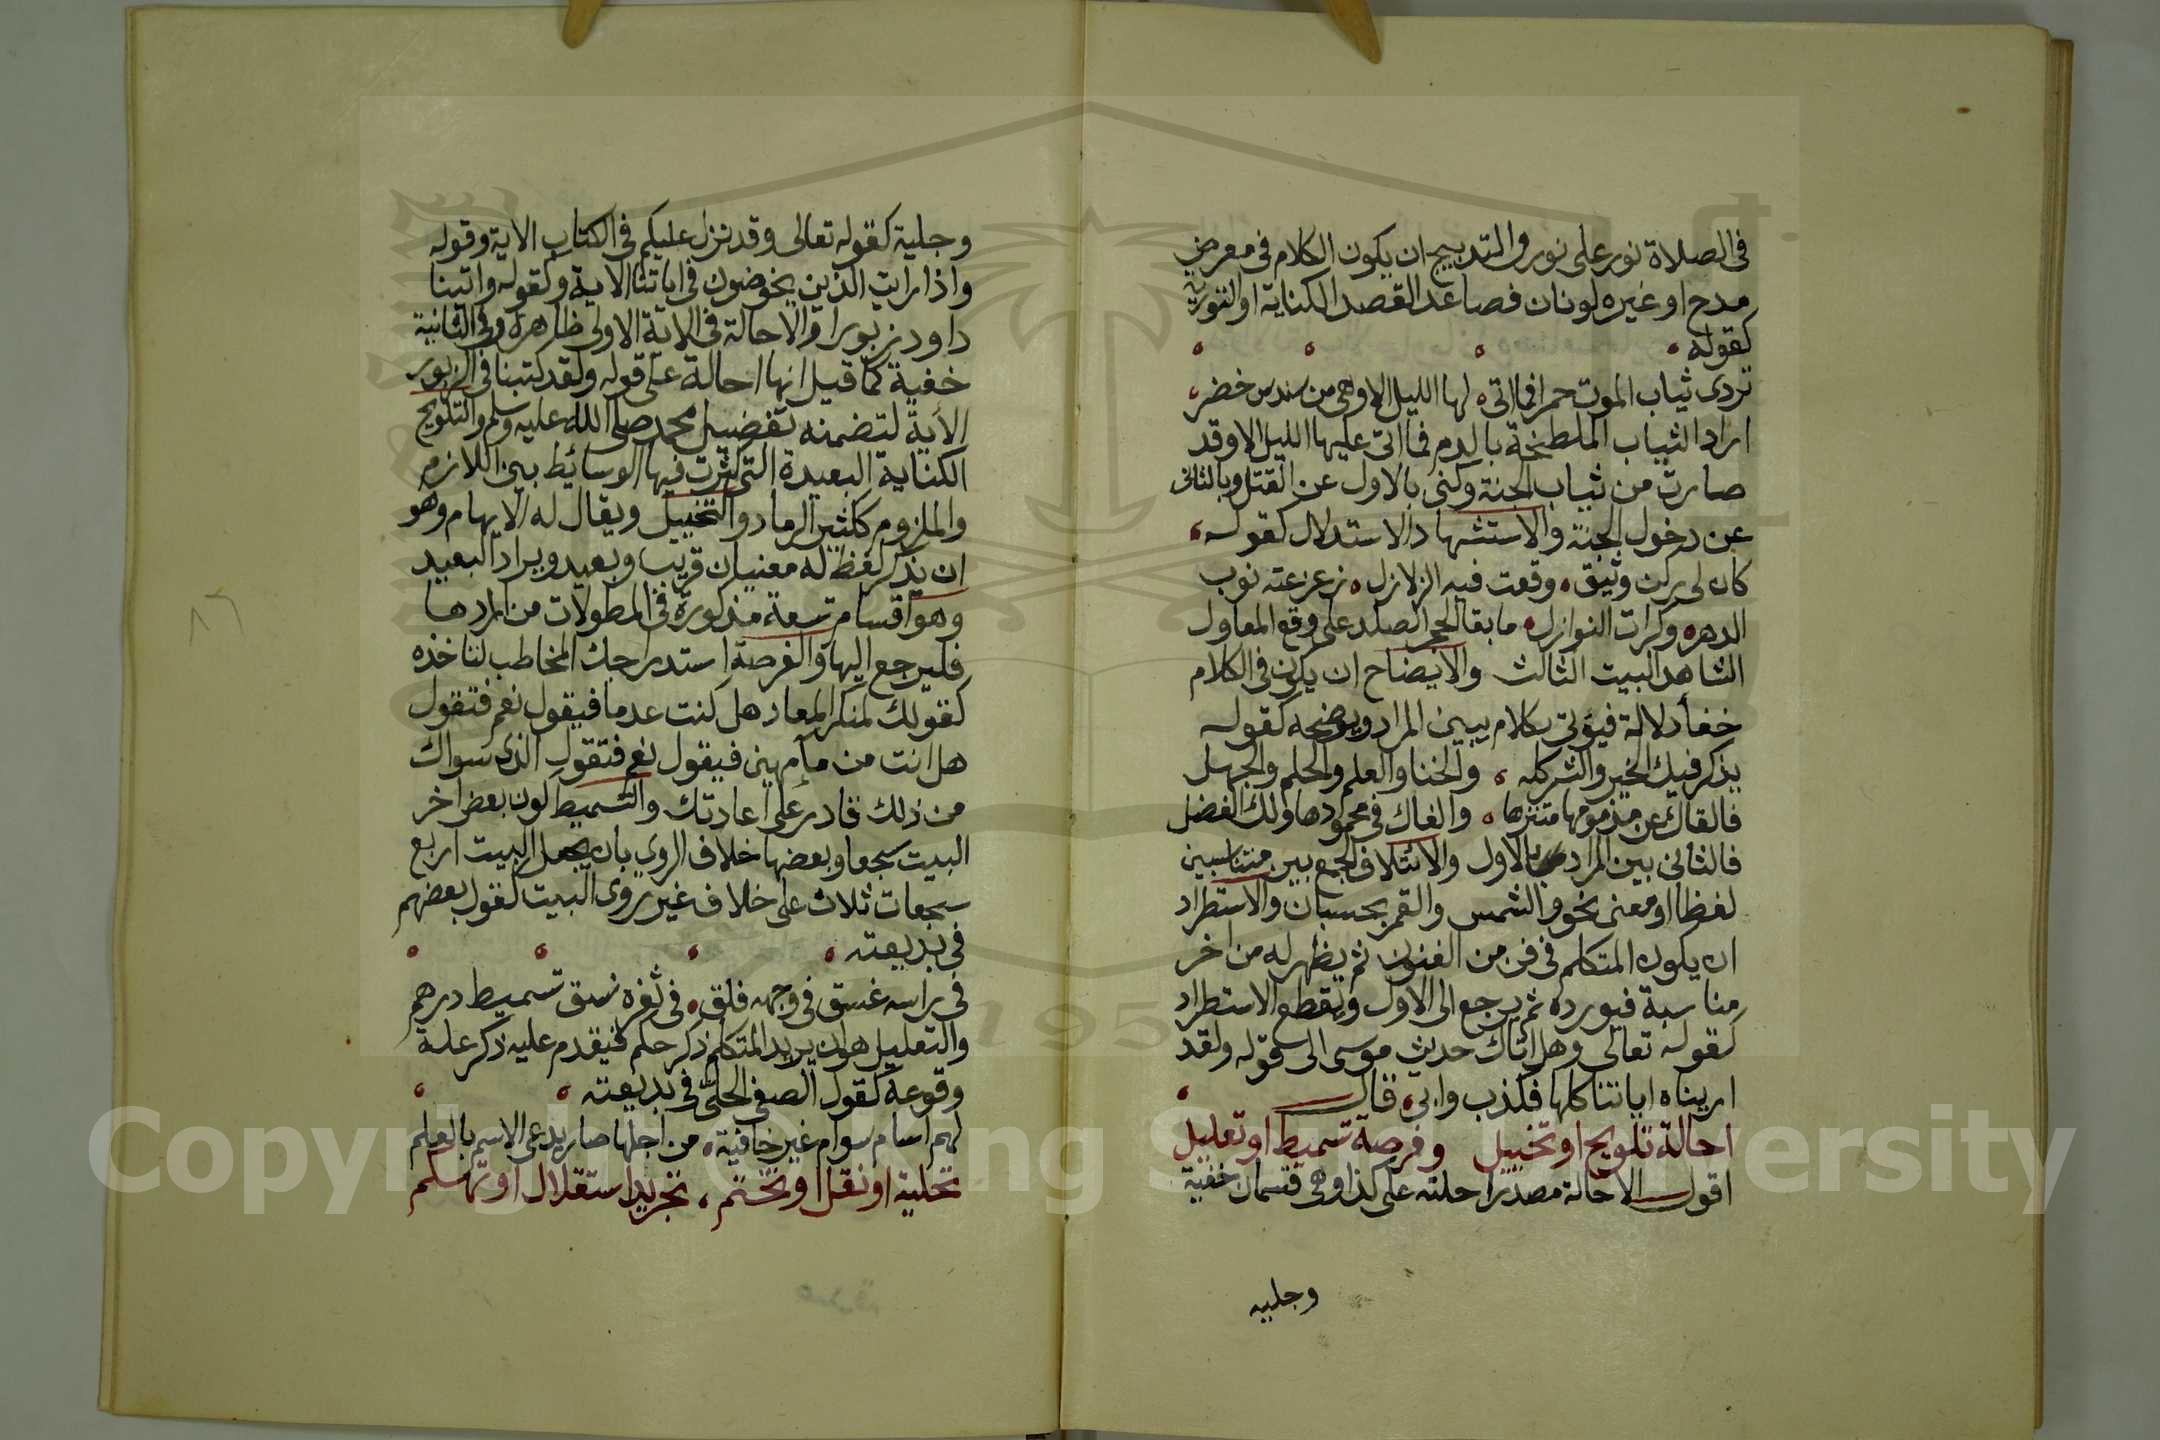 في الصلاة نور على نور والتدبيج ان يكون الكلام في معرض
مدح او غيره لونان فصاعد القصد الكناية او التورية
كقوله
تردى ثياب الموت حمرا فما اتى لها الليل الا وهي من سندس خضر
اراد الثياب الملطخة بالدم فما اتى عليها الليل الا وقد
صارت من ثياب الجنة وكنى بالاول عن القتل وبالثاني
عن دخول الجنة والاستشهاد الاستدلال كقوله
كان لي ركن وثيق وقعت فيه الزلازل زعزعته نوب
الدهر وكرات النوازل ما بقا الحجر الصلد على وقع المعاول
الشاهد البيت الثالث والايضاح ان يكون في الكلام
خفأ دلالة فيؤتى بكلام يبين المراد ويوضحه كقوله
يذكر فيك الخير والشر كله والخنا والعلم والحلم والجهل
فالقاك عن مذمومها متنزها والقاك في محمودها ولك الفضل
فالثاني بين المراد بالاول والائتلاف الجمع بين متناسبين
لفظا او معنى نحو والشمس والقمر بحسبان والاستطراد
ان يكون المتكلم في فن من الفنون ثم يظهر له من اخر
مناسبة فيورده ثم يرجع الى الاول ويقطع الاستطراد
كقوله تعالى وهل اتاك حديث موسى الى قوله ولقد
اريناه اياتنا كلها فكذب وابى قال
احالة تلويح او تخييل وفرصة تسميط او تعليل
اقول الاحالة مصدر احلته على كذا وهي قسمان خفية
وجليه
وجلية كقوله تعالى وقد نزل عليكم في الكتاب الاية وقوله
واذا رايت الذين يخوضون في اياتنا الاية وكقوله واتينا
داود زبورا والاحالة في الاية الاولى ظاهرة وفي الثانية
خفية كما قيل انها احالة على قوله ولقد كتبنا في الزبور
الاية لتضمنه تفضيل محمد صلى الله عليه وسلم والتلويح
الكناية البعيدة التي كثرت فيها الوسائط بين اللازم
والملزوم ككثير الرماد والتخييل ويقال له الايهام وهو
ان يذكر لفظ له معنيان قريب وبعيد ويراد البعيد
وهو اقسام تسعة مذكورة في المطولات من ارادها
فليرجع اليها والفرصة استدراجك المخاطب لتاخذه
كقولك لمنكر المعاد هل كنت عدما فيقول نعم فتقول
هل انت من مآء مهين فيقول نعم فتقول الذي سواك
من ذلك قادر على اعادتك والتسميط كون بعض اخر
البيت سجعا وبعضها خلاف الروي بان يجعل البيت اربع
سجعات ثلاث على خلاف غير روى البيت كقول بعضهم
في بديعته
في راسه غسق في وجهه فلق في ثغره نسق تسميط درهم
والتعليل هو ان يريد المتكلم ذكر حكم فيقدم عليه ذكر علة
وقوعه كقول الصفي الحلي في بديعته
لهم اسام سوام غير خافية من اجلها صار يدعى الاسم بالعلم
تحلية او نقل او تختم تجريد استقلال او تهكم